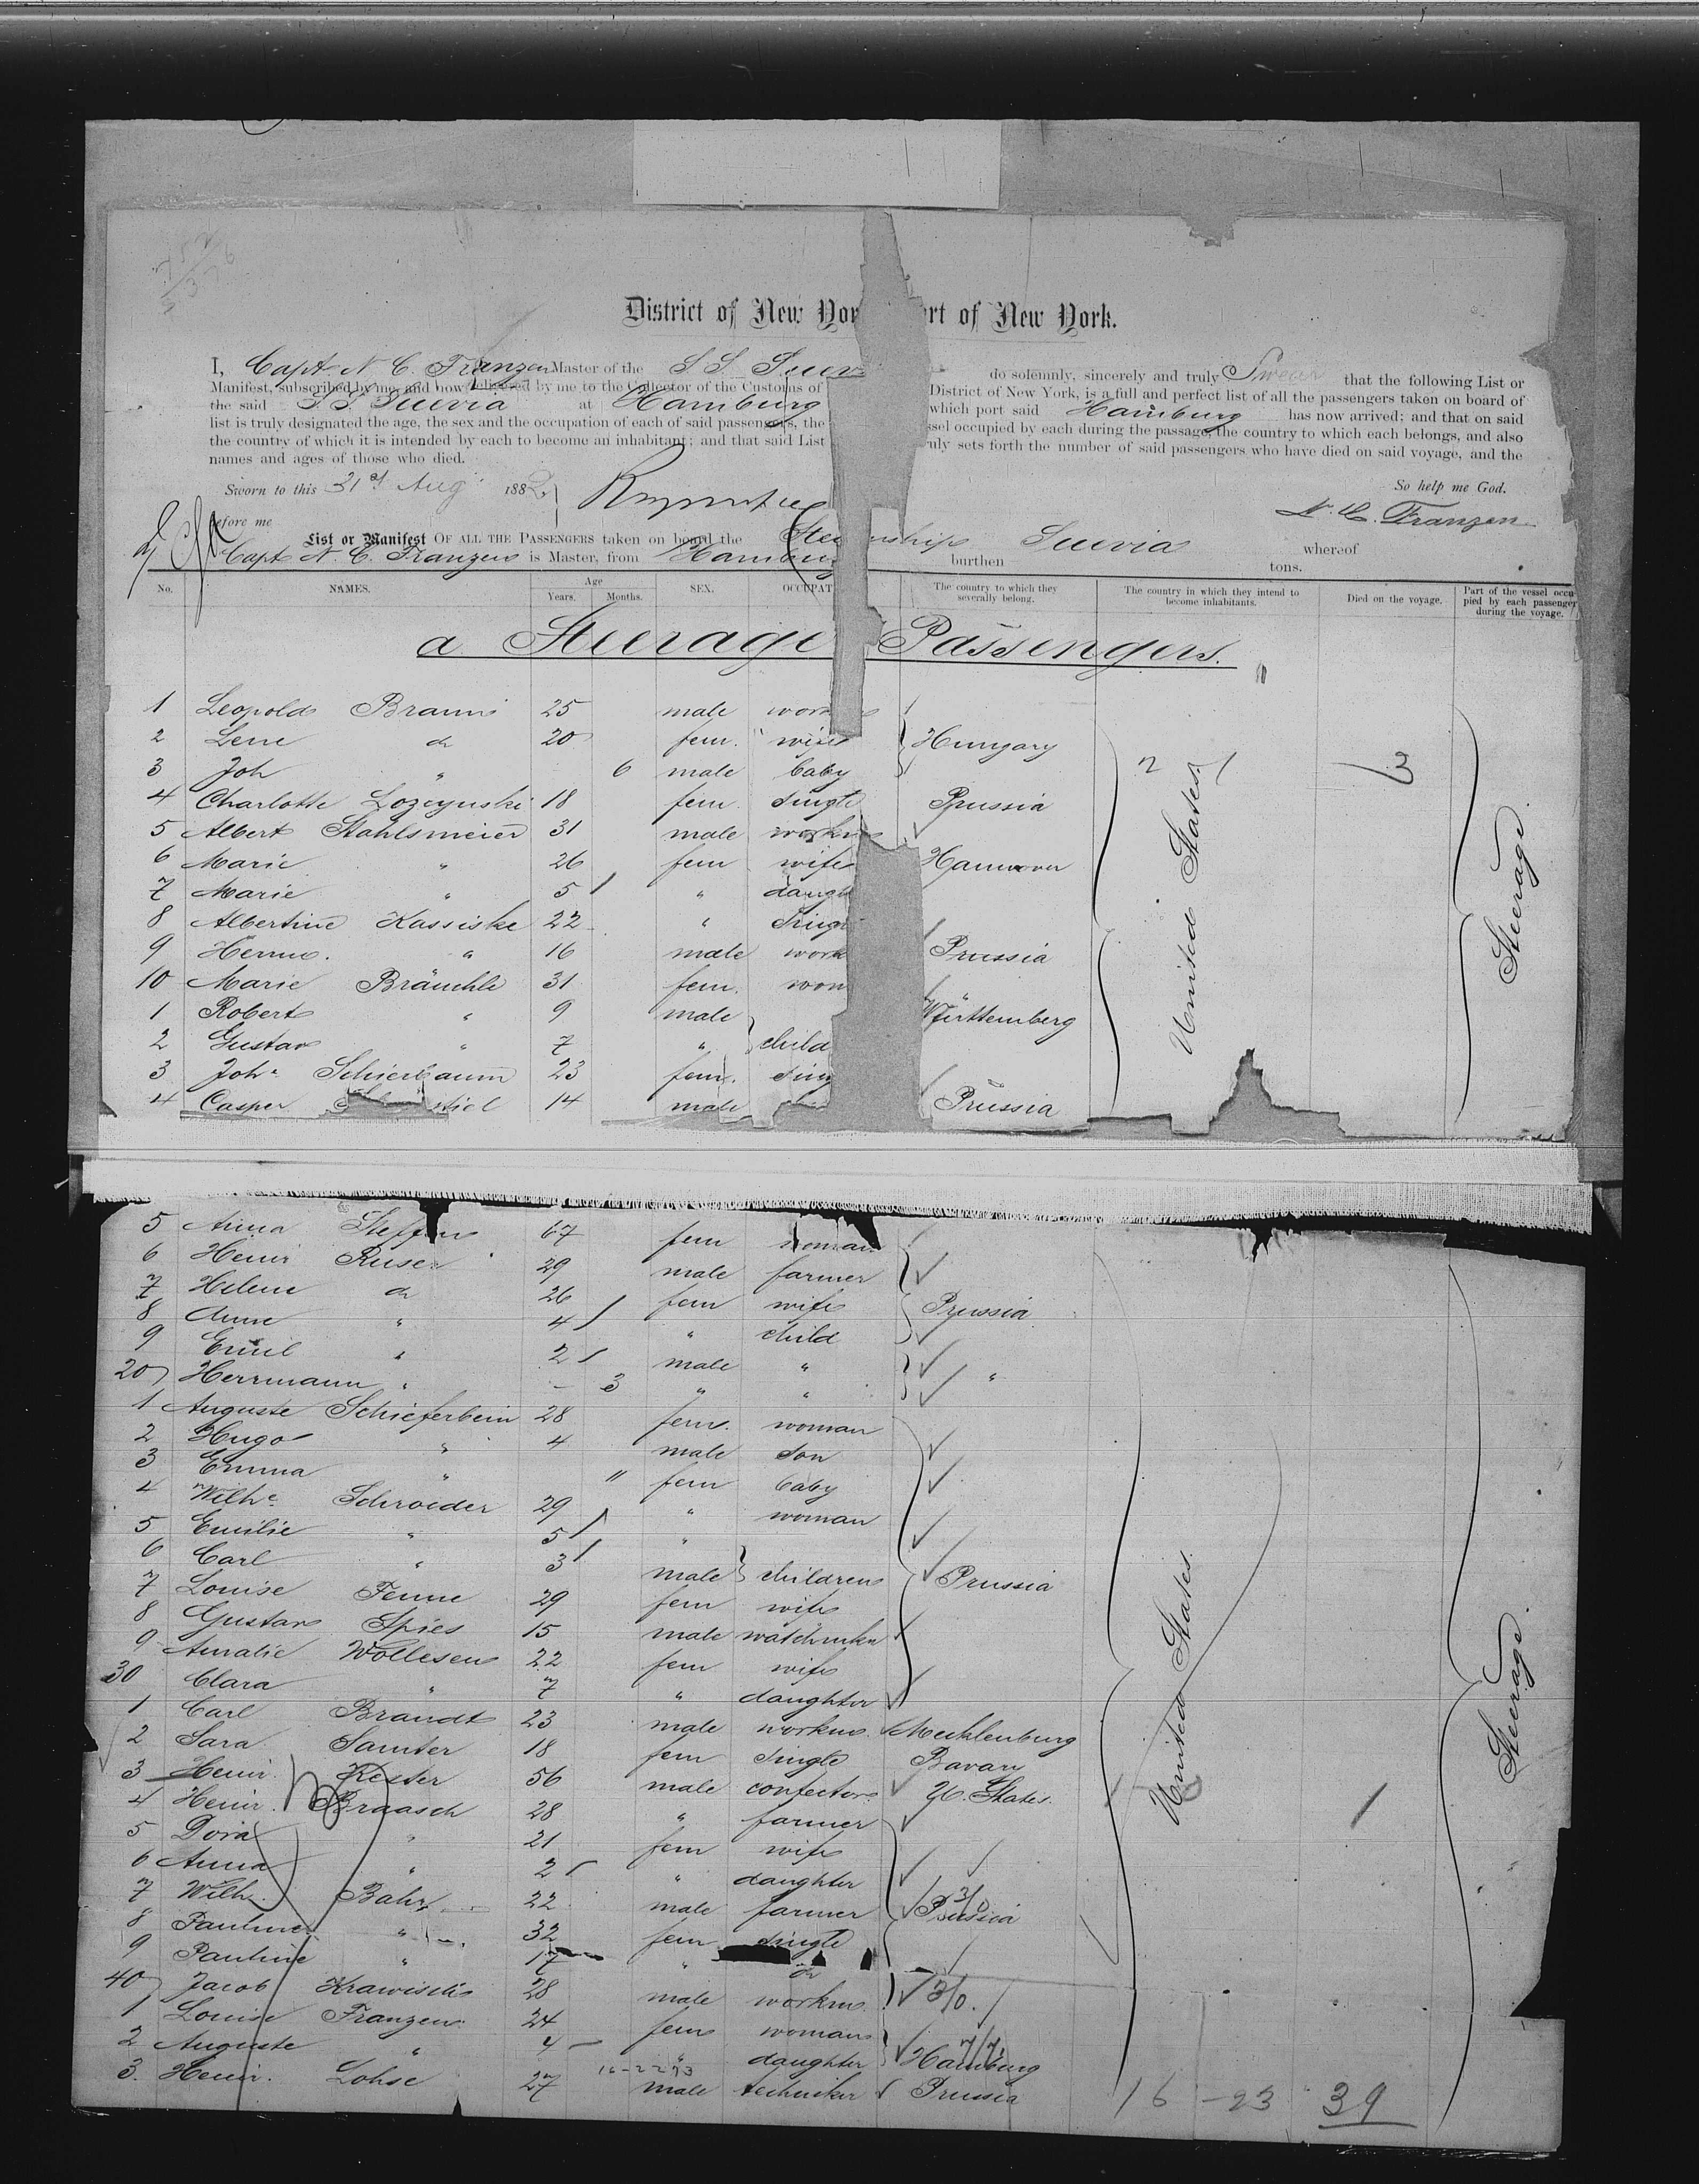 District of New Yor rt of New York.
I, Capt. N. C. Franzen Master of the S S Suev do solemnly, sincerely and truly Swear that the following List or
Manifest, subscribed by me, and now delivered by me to the Collector of the Customs of District of New York, is a full and perfect list of all the passengers taken on board of
the said S. S. Suevia at Hamburg which port said Hamburg has now arrived; and that on said
list is truly designated the age, the sex and the occupation of each of said passengers, the sel occupied by each during the passage, the country to which each belongs, and also
the country of which it is intended by each to become an inhabitant; and that said List uly sets forth the number of said passengers who have died on said voyage, and the
names and ages of those who died.
So help me God.
Sworn to this 31st Aug 1882
N. C. Franzen
before me
List or Manifest OF ALL THE PASSENGERS taken on board the Stea nship Suevia whereof
Capt N. C. Franzen is Master, from Hamburg burthen tons.
No. NAMES. Age Years. Months. SEX. OCCUPAT The country to which they severally belong. The country in which they intend to become inhabitants. Died on the voyage. Part of the vessel occupied by each passenger during the voyage.
a Steerage Passengers.
1 Leopold Braun 25 male work
2 Lene do 20 fem. wife Hungary
3 Joh " 6 male baby
4 Charlotte Lozeynski 18 fem. single Prussia
5 Albert Stahlsmeier 31 male workm
6 Marie " 26 fem wife Hannover
7 Marie " 5 " daught
8 Albertine Kassiske 22 " sing
9 Herm. " 16 male work Prussia
10 Marie Bräuchle 31 fem. wom "
1 Robert " 9 male Württemberg
2 Gustav " 7 " child
3 Joh. Schierbaum 23 fem. sing "
4 Casper 14 male Prussia
United States
Steerage
5 Anna Steffens 67 fem woman
6 Heinr Ruser 29 male farmer
7 Helene do 26 fem wife Prussia
8 Anne " 4 " child
9 Emil " 2 male "
20 Herrmann " - 3 " " "
1 Auguste Schieferbein 28 fem. woman
2 Hugo " 4 male son
3 Emma " 11 fem baby
4 Wilhe. Schroeder 29 " woman
5 Emilie " 5 "
6 Carl " 3 male children Prussia
7 Louise Fenne 29 fem wife
8 Gustav Spies 15 male watchmkr
9 Amalie Wollesen 22 fem wife
30 Clara " 7 " daughter
1 Carl Brandt 23 male workm. Mecklenburg
2 Sara Samter 18 fem single Bavary
3 Heinr. Kester 56 male confector U. States.
4 Heinr. Braasch 28 " farmer
5 Dora " 21 fem wife
6 Anna " 2 " daughter
7 Wilh. Bahr 22 male farmer Prussia
8 Pauline " 32 fem single
9 Pauline " 17 " do
40 Jacob Krawisch 28 male workm.
1 Louise Franzen 24 fem woman
2 Auguste " 4 " daughter Hamburg
3. Heinr. Lohse 27 male techniker Prussia
United States.
Steerage
16 - 23 39